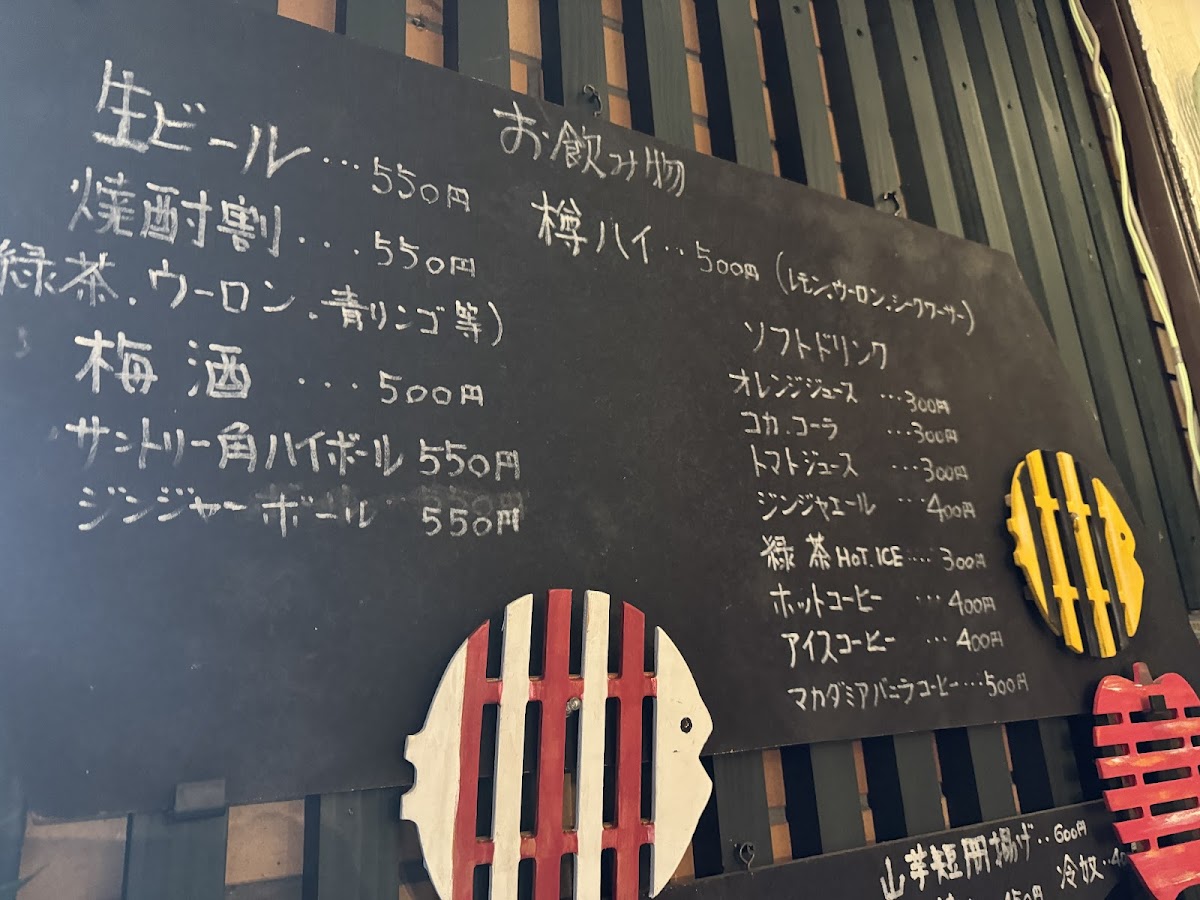 お飲み物
生ビール…550円
焼酎割...550円
緑茶.ウーロン.青リンゴ等)
梅酒....500円
サントリー角ハイボール 550円
ジンジャーボール 550円
樽ハイ..500円(レモン.ウーロン.シークワーサー)
ソフトドリンク
オレンジジュース ...300円
コカ.コーラ ...300円
トマトジュース ...300円
ジンジャエール ...400円
緑茶HOT.ICE....300円
ホットコーヒー ...400円
アイスコーヒー ...400円
マカダミアバニラコーヒー...500円
山芋短冊揚げ..600円
冷奴..40
450円